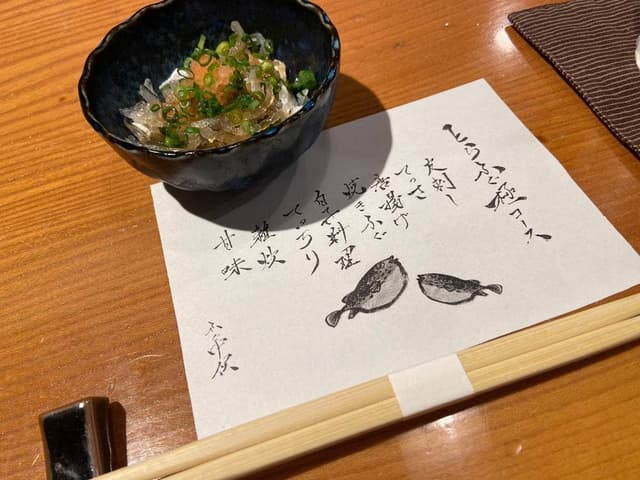 とらふぐ極コース
皮刺し
てっさ
唐揚げ
焼きふぐ
白子料理
てっちり
雑炊
甘味